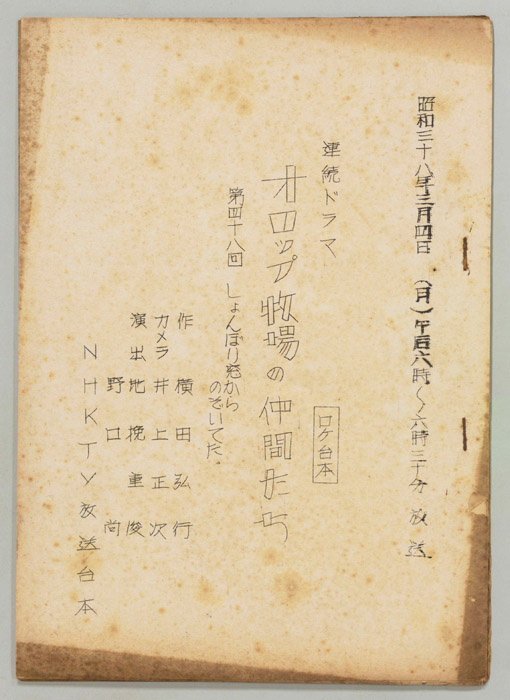 昭和三十八年三月四日 (月) 午后六時〜六時三十分 放送
連続ドラマ
オロップ牧場の仲間たち
ロケ台本
第四十八回 しょんぼり窓から
のぞいてた
作 横田弘行
カメラ 井上正次
演出 地挽重俊
野口 尚
NHKTV放送台本